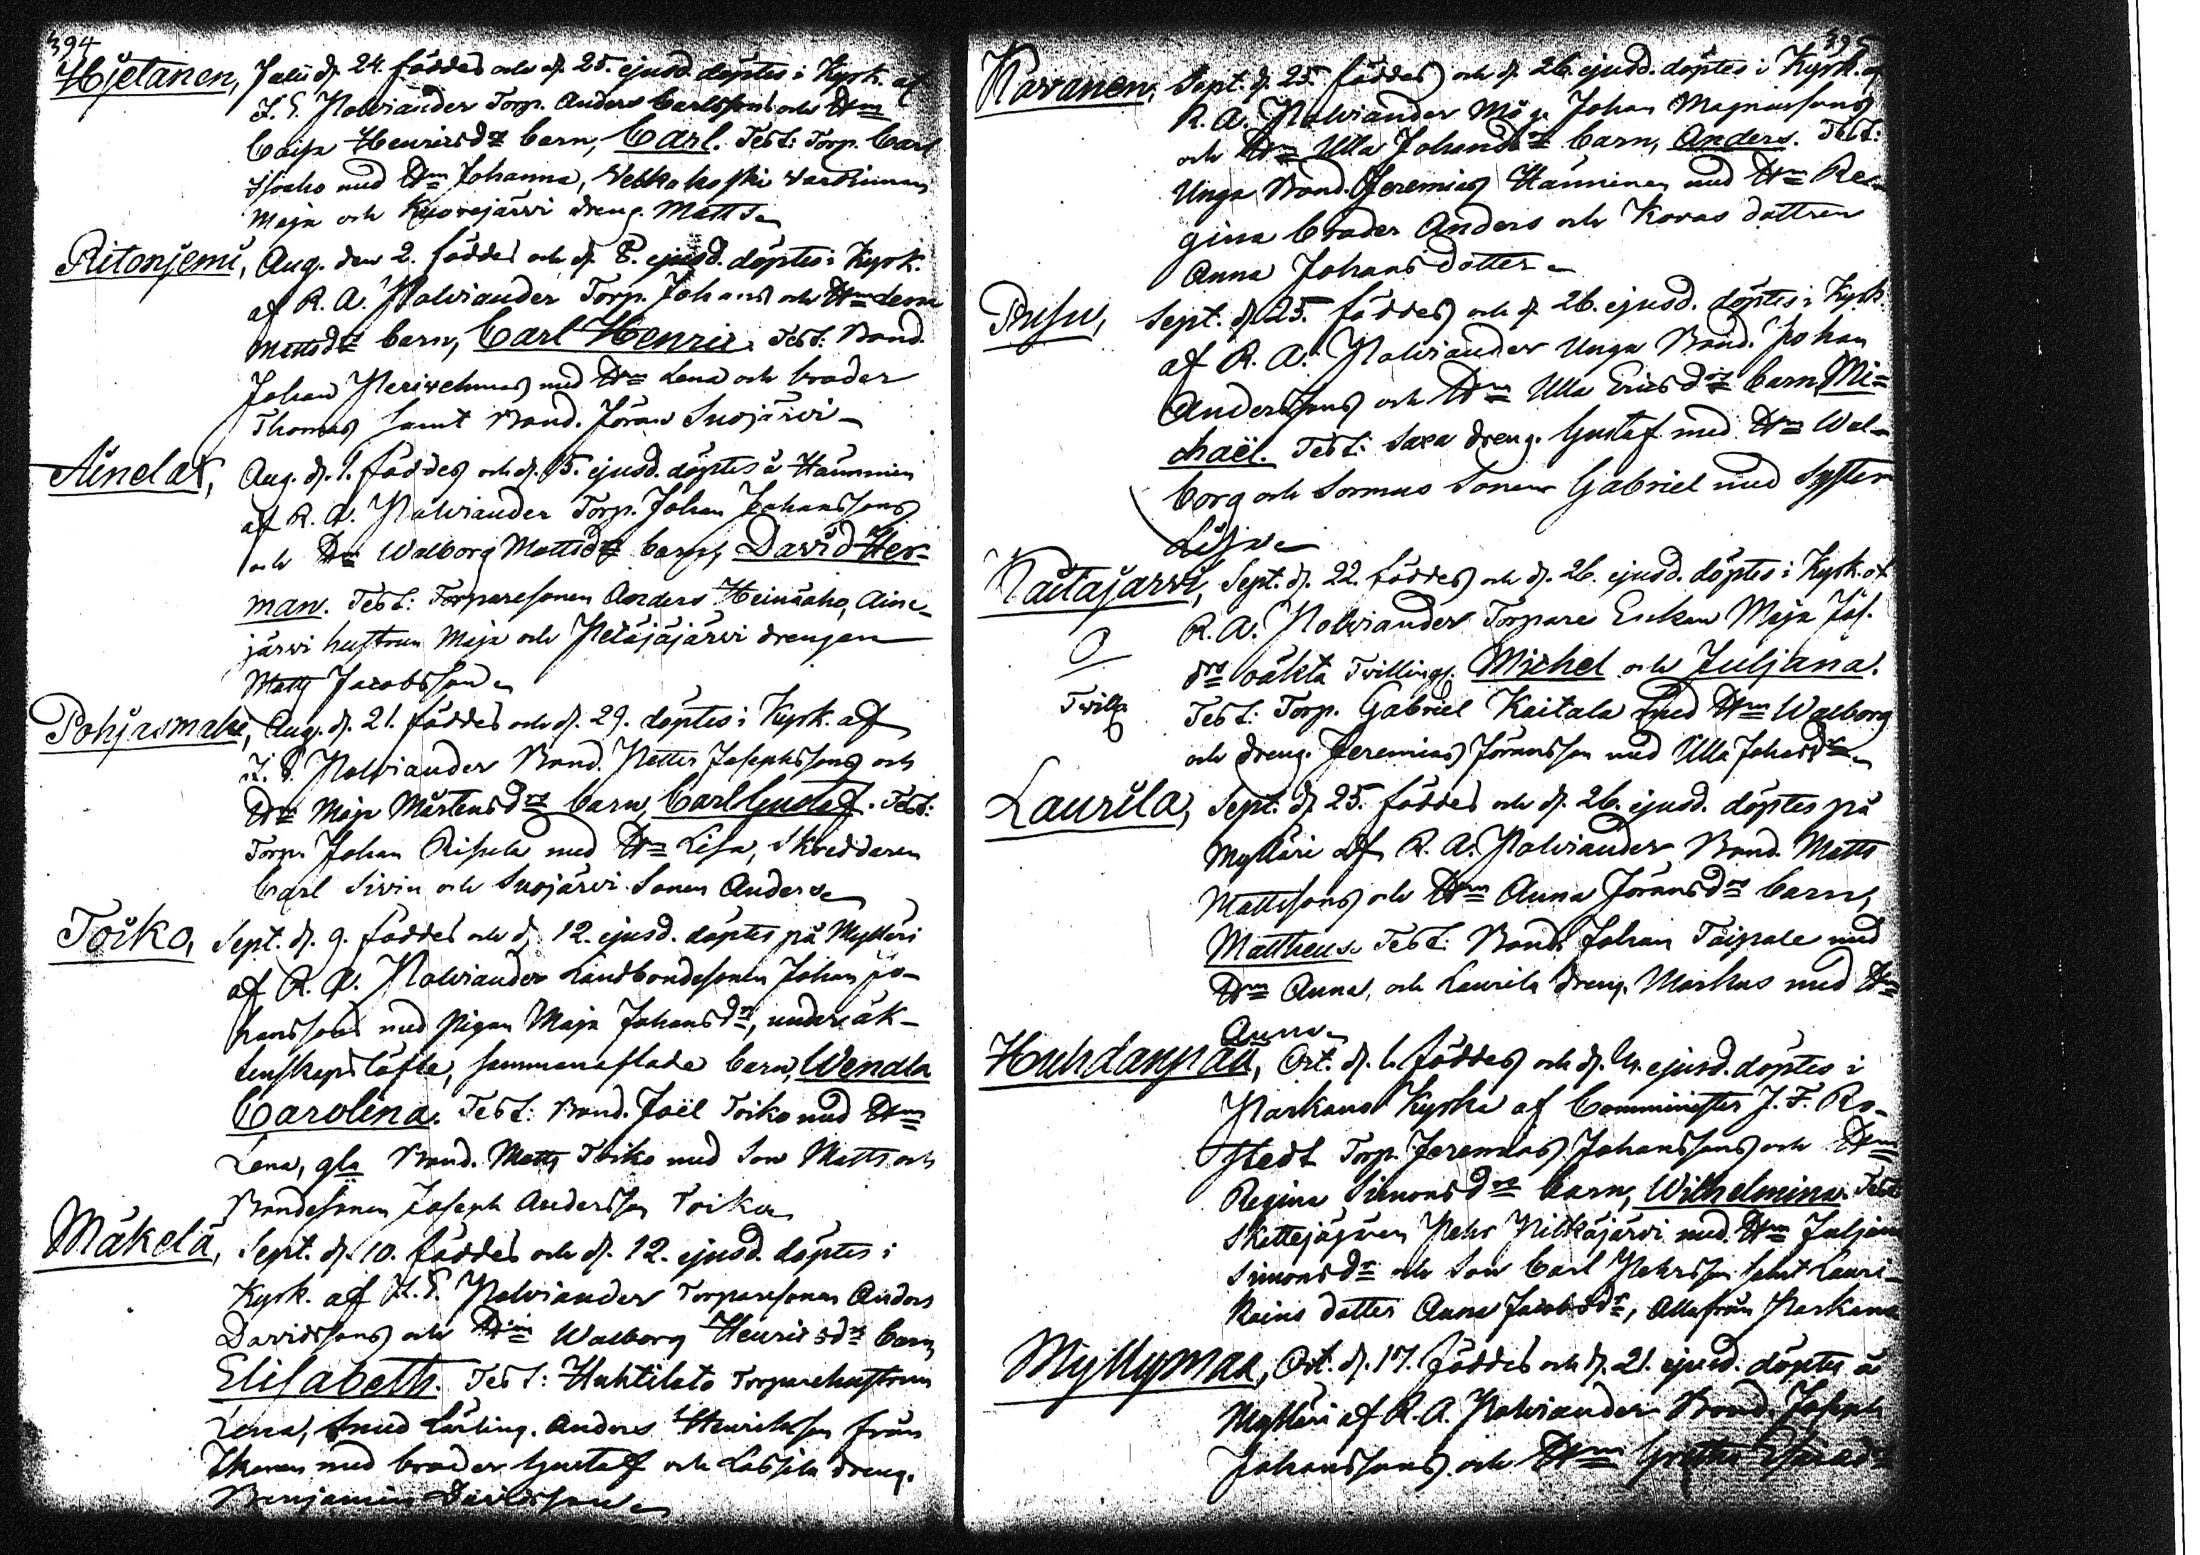 394
Hjetanen, Julii d. 24. föddes och d. 25. ejusd. döptes i Kyrk. af
J. E. Palviander Torp. Anders Carlssons och Hm
Caisa Henricsdrs barn, Carl. Test: Torp. Carl
med Hm Johanna,
Maja och Kuorejärvi dreng. Matts.
Ritoniemi, Aug. den 2. föddes och d. 8. ejusd. döptes i Kyrk.
af R. A. Palviander Torp. Johans och Hm Lena
Mattsdrs barn, Carl Henric. Test: Bond.
Johan med Hm Lena och broder
Thomas samt Bond. Jöran Suojärvi
Ainelax, Aug. d. 1. föddes och d. 15. ejusd. döptes å
af R. A. Palviander Torp. Johan Johanssons
och Hm Walborg Mattsdrs barn, David Her-
man. Test: Torparesonen Anders Heinäaho, Aine-
järvi hustrun Maja och Petäjäjärvi drengen
Matts Jacobsson
Pohjasmäki, Aug. d. 21. föddes och d. 29. döptes i Kyrk. af
J. E. Palviander Bond. Petter Josephssons och
Hm Maja Mårtensdrs barn, Carl Gustaf. Test:
Torp. Johan med Hm Lisa, Skreddaren
Carl Sivin och Suojärvi Sonen Anders
Toiko, Sept. d. 9. föddes och d. 12. ejusd. döptes på Mylläri
af R. A. Palviander Landbondesonen Johan Jo-
hanssons med pigan Maja Johansdr, under äk-
tenskapslöfte, sammanaflade barn, Wendla
Carolina. Test: Bond. Joël Toiko med Hm
Lena, gla Bond. Matts Toiko med Son Matts och
Bondesonen Joseph Andersson Toiko
Mäkelä, Sept. d. 10. föddes och d. 12. ejusd. döptes i
Kyrk. af J. E. Palviander Torparesonen Anders
Davidssons och Hm Walborg Henricsdrs barn
Elisabeth. Test: Huhtilato Torparehustrun
Lena, Smed Lärling. Anders Henriksson från
Ikonen med broder Gustaf och Lassila dreng.
Benjamin Davidsson
395
Karanen, Sept. d. 25. föddes och d. 26. ejusd. döptes i Kyrk. af
R. A. Palviander Måg. Johan Magnussons
och Hm Ulla Johansdrs barn, Anders. Test:
Unga Bond. Jeremias Hänninen med Hm Re-
gina broder Anders och Koras dottren
Anna Johansdotter
Pusu, Sept. d. 25. föddes och d. 26. ejusd. döptes i Kyrk.
af R. A. Palviander Unga Bond. Johan
Anderssons och Hm Ulla Ericsdrs barn, Mi-
chaël. Test: Saxa dreng. Gustaf med Hm Wal-
borg och Sormus Sonen Gabriel med Syster
Lisa
Kaitajärvi, Sept. d. 22. föddes och d. 26. ejusd. döptes i Kyrk. af
R. A. Palviander Torpare Enkan Maja Jos.
drs oäkta Tvillingf. Michel och Juljana.
Tvill.
Test: Torp. Gabriel Kaitala med Hm Walborg
och dreng. Jeremias Jöransson med Ulla Johansdr
Laurila, Sept. d. 25. föddes och d. 26. ejusd. döptes på
Mylläri af R. A. Palviander Bond. Matts
Mattssons och Hm Anna Jöransdrs barn,
Mattheus. Test: Bond. Johan Taipale med
Hm Anna, och Laurila dreng. Markus med Hm
Anna
Huhdanpää, Oct. d. 1. föddes och d. ejusd. döptes i
Parkano Kyrka af Comminister J. F. Ro-
stedt Torp. Jeremias Johanssons och Hm
Regina Simonsdrs barn, Wilhelmina. Test
Skottejägaren Pehr Pitkäjärvi med Hm Juljana
Simonsdr och Son Carl Pehrsson samt Lauri-
dotter Anna Jacobsdr, Alla från Parkano
Myllymaa, Oct. d. 17. föddes och d. 21. ejusd. döptes å
Mylläri af R. A. Palviander Bond. Joseph
Johanssons och Hm Gretha